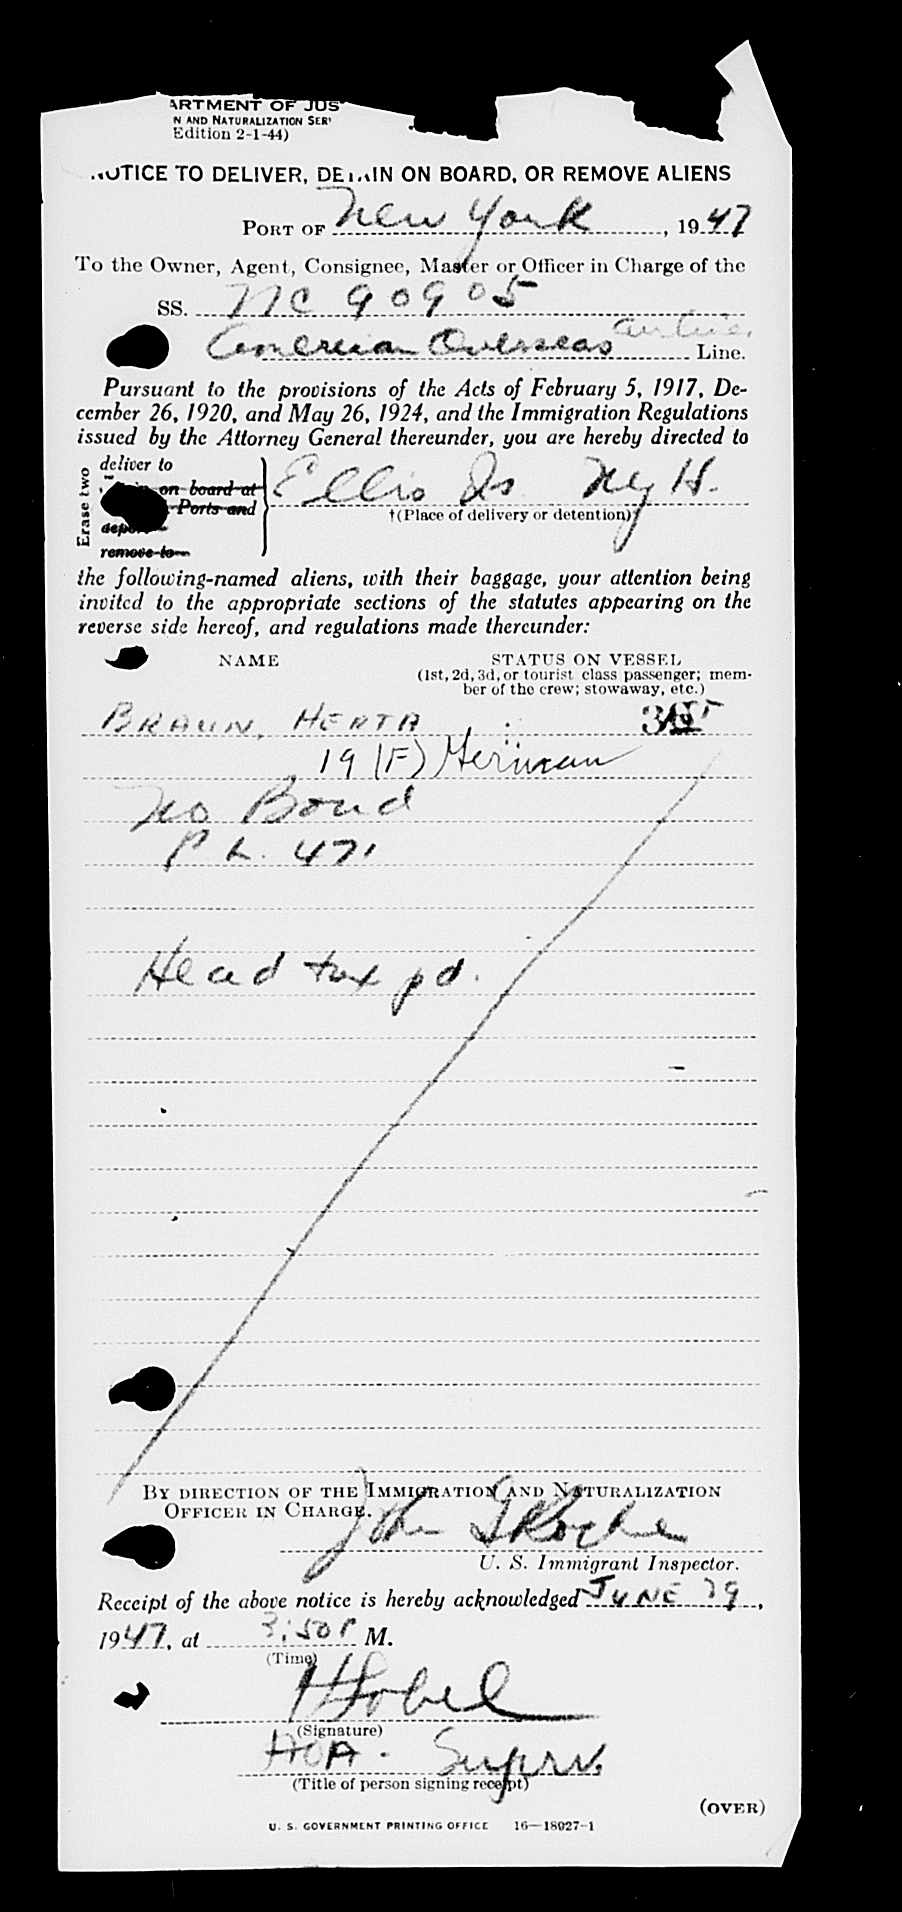 ARTMENT OF JUS
N AND NATURALIZATION SER
Edition 2-1-44)
NOTICE TO DELIVER, DETAIN ON BOARD, OR REMOVE ALIENS
PORT OF New York, 1947
To the Owner, Agent, Consignee, Master or Officer in Charge of the
SS. NC 90905
American Overseas Airlines Line.
Pursuant to the provisions of the Acts of February 5, 1917, De-
cember 26, 1920, and May 26, 1924, and the Immigration Regulations
issued by the Attorney General thereunder, you are hereby directed to
Erase two
deliver to
on board at
Ports and
depo
remove to
Ellis Is NyH.
†(Place of delivery or detention)†
the following-named aliens, with their baggage, your attention being
invited to the appropriate sections of the statutes appearing on the
reverse side hereof, and regulations made thereunder:
NAME STATUS ON VESSEL
(1st, 2d, 3d, or tourist class passenger; mem-
ber of the crew; stowaway, etc.)
BRAUN, HERTA
19 (F) German
No Bond
P L. 471
Head tax pd.
BY DIRECTION OF THE IMMIGRATION AND NATURALIZATION
OFFICER IN CHARGE.
John
U. S. Immigrant Inspector.
Receipt of the above notice is hereby acknowledged JUNE 29,
1947, at 3:50 P M.
(Time)
(Signature)
AOA. Suprv.
(Title of person signing receipt)
(OVER)
U. S. GOVERNMENT PRINTING OFFICE 16—18027-1